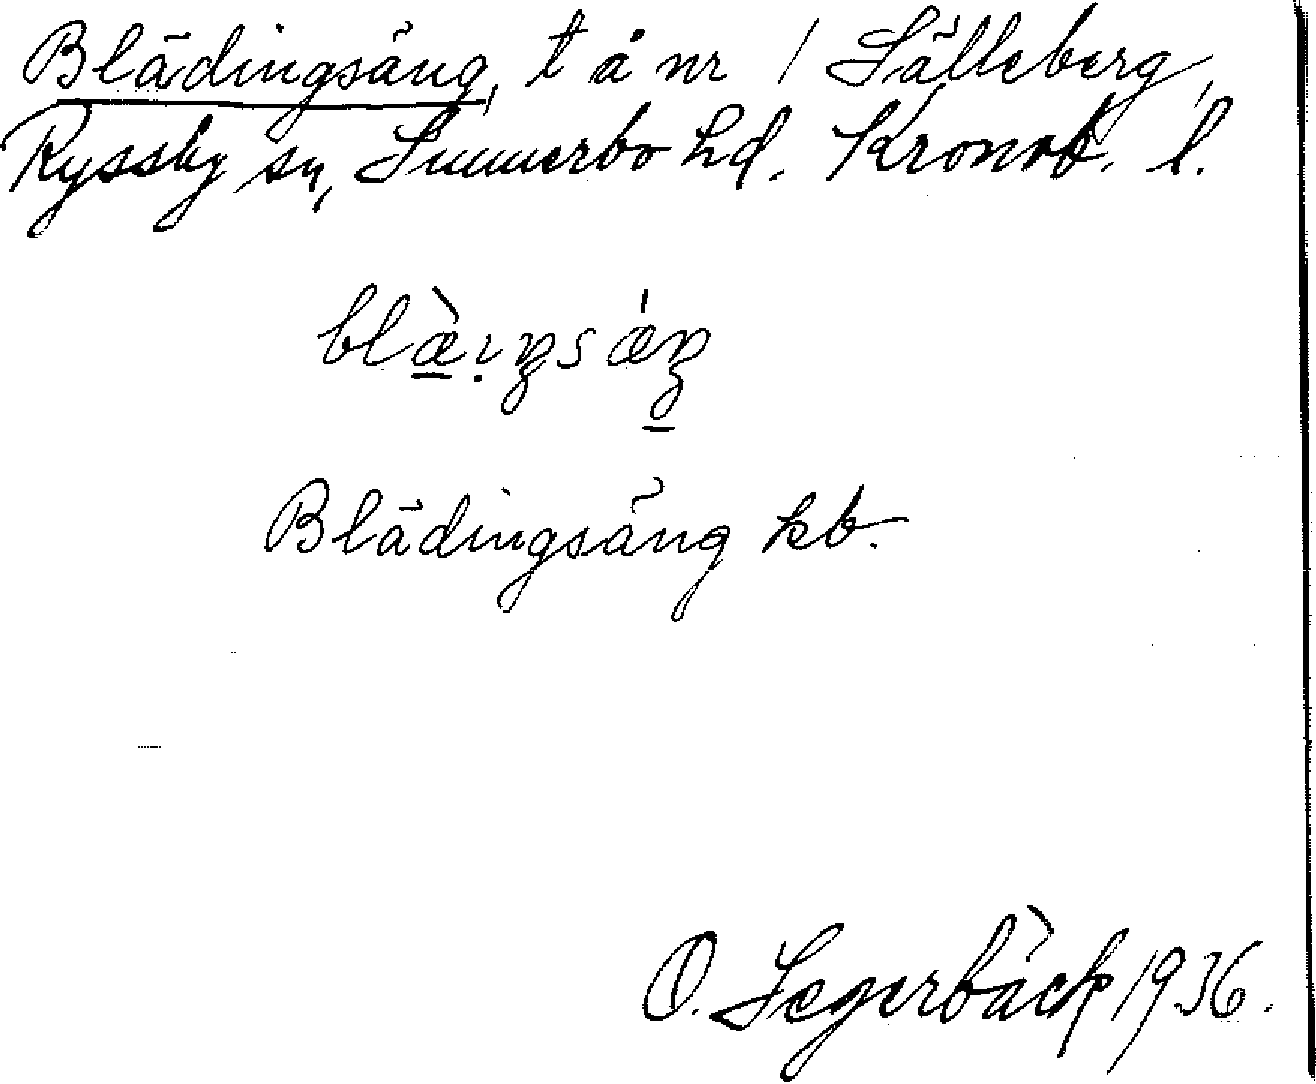 Blädingsäng, t å nr 1 Sälleberg,
Ryssby sn, Sunnerbo hd. Kronob. l.
blæ̀ıŋsæ̀ŋ
Blädingsäng kb.
O. Segerbäck 1936.